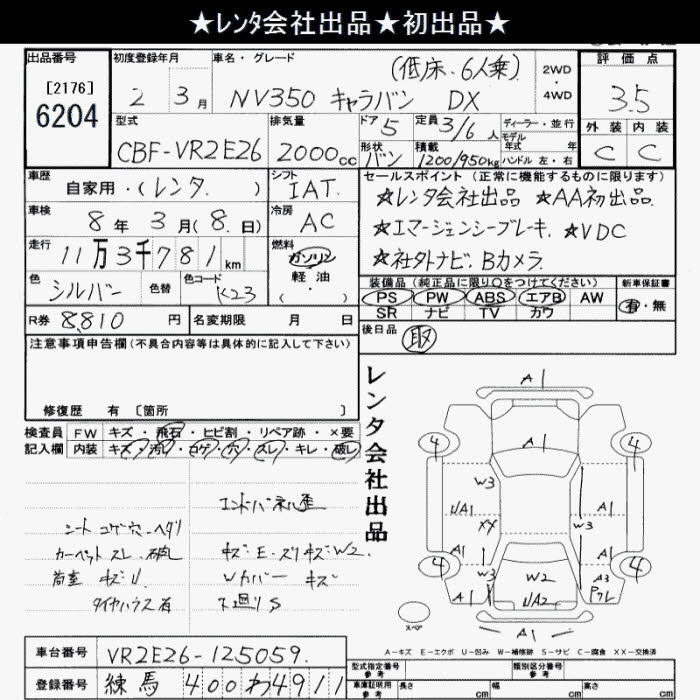 ★レンタ会社出品★初出品★
出品番号
[2176]
6204
初度登録年月
2年 3月
車名・グレード
(低床・6人乗)
NV350 キャラバン DX
2WD
・
4WD
評価点
3.5
外装 内装
C C
型式
CBF-VR2E26
排気量
2000cc
ドア 5
形状 バン
定員 3/6人
積載 1200/950kg
ディーラー・並行
モデル
年式 年
ハンドル 左・右
車歴
自家用・(レンタ)
シフト
IAT
車検
8年 3月(8日)
冷房
AC
走行
11万3千781km
燃料
ガソリン
軽・油
( ・ )
色
シルバー
色替
色コード
K23
セールスポイント (正常に機能するものに限ります)
☆レンタ会社出品 ☆AA初出品
☆エマージェンシーブレーキ ☆VDC
☆社外ナビ、Bカメラ
装備品(純正品に限り○をつけてください)
PS PW ABS エアB AW
SR ナビ TV カワ
新車保証書
有・無
R券 8,810円
名変期限 月 日
後日品
取
注意事項申告欄(不具合内容等は具体的に記入して下さい)
修復歴 有 [箇所 ]
検査員
記入欄
FW キズ・飛石・ヒビ割・リペア跡・×要
内装 キズ・汚レ・コゲ・穴・スレ・キレ・破レ
エンドパネル歪
シート コゲ穴 ヘタリ
カーペット スレ 破レ
キズ・E・スリキズW2
荷室 キズU
Wカバー キズ
タイヤハウス有
下廻りS
レンタ会社出品
A1
4
A1
4
W3
UA1
XX
W3
A1
A1
W3
A1
4
W2
UA2
A3
4
A1
A1
スペア
A-キズ E-エクボ U-凹み W-補修跡 S-サビ C-腐食 XX-交換済
車台番号 VR2E26-125059
登録番号 練馬 400 わ 4911
型式指定番号
参考
類別区分番号
参考
車庫証明用
参考
長さ cm 幅 cm 高さ cm